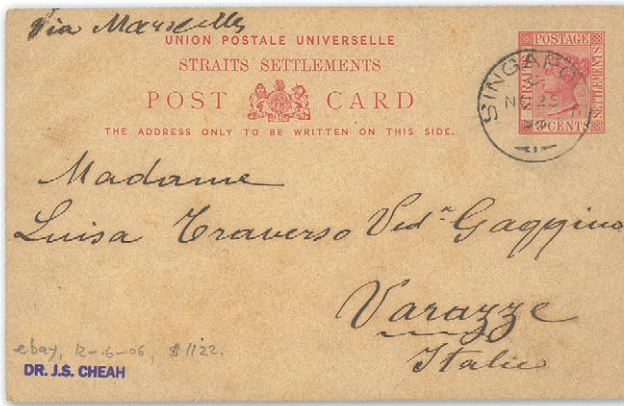 Via Marseille
UNION POSTALE UNIVERSELLE
STRAITS SETTLEMENTS
POST CARD
THE ADDRESS ONLY TO BE WRITTEN ON THIS SIDE.
POSTAGE
STRAITS
SETTLEMENTS
CENTS
SINGAPORE
NO 25
Madame
Luisa Traverso Ved.ª Gaggino
Varazze
Italie
ebay, 12-6-06, $1122.
DR. J.S. CHEAH